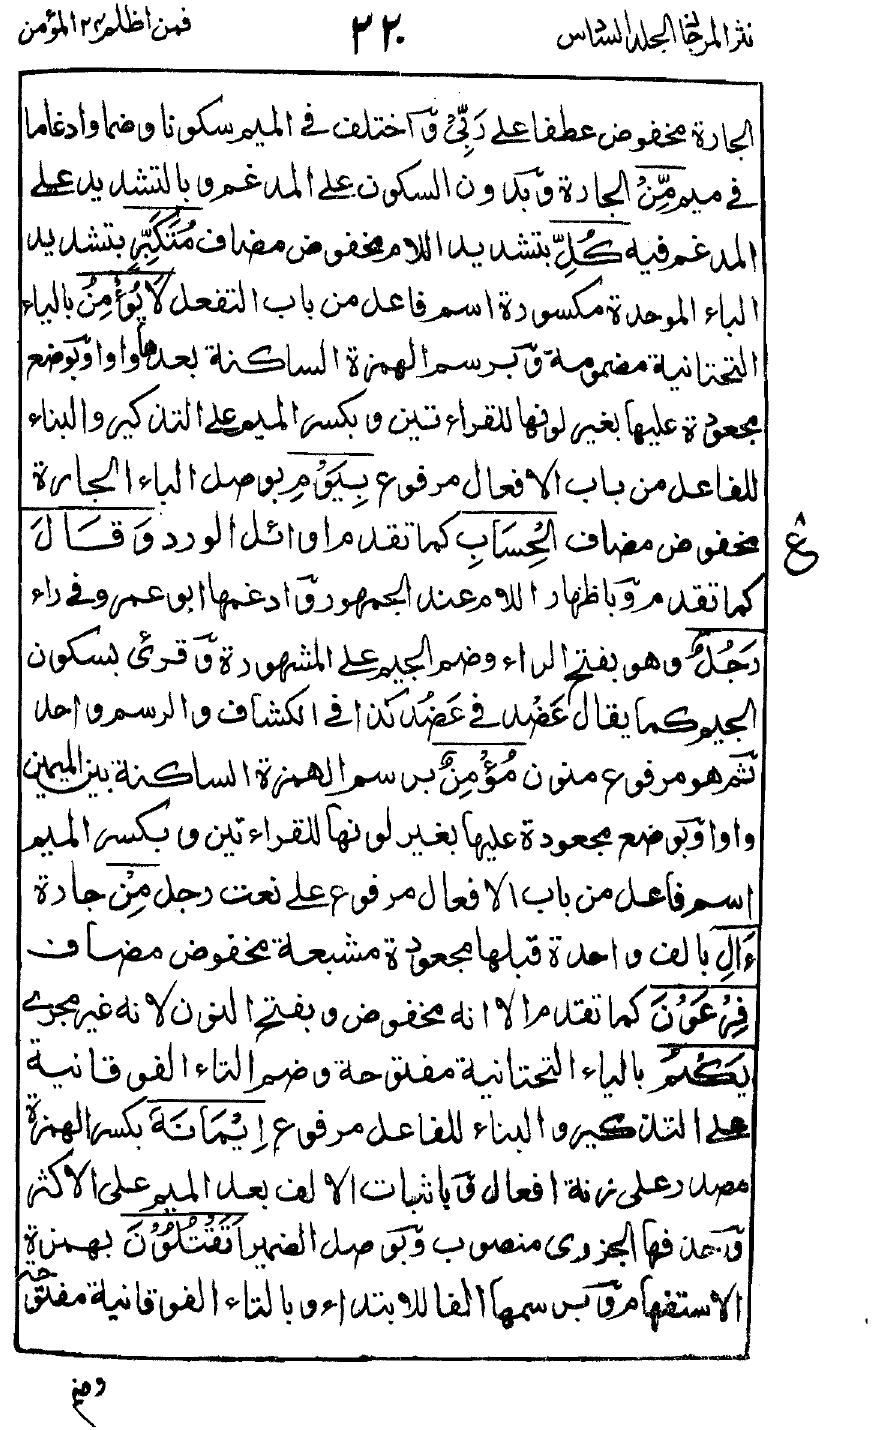 نثر المرجان الجلد السادس ٣٢٠ فمن اظلم ٢٤ المؤمن
الجارة مخفوض عطفا على رَبِّيْ وَ اختلف في الميم سكونا وضما وادغاما
في ميم مِّنْ الجارة وَّبدون السكون على المدغم وبالتشديد على
المدغم فيه كُلِّ بتشديد اللام مخفوض مضاف مُتَكَبِّرٍ بتشديد
الباء الموحدة مكسورة اسم فاعل من باب التفعل لَا يُؤْمِنُ بالياء
التحتانية مضمومة وّبرسم الهمزة الساكنة بعدها واوا وّبوضع
مجعودة عليها بغير لونها للقراءتين وبكسر الميم على التذكير والبناء
للفاعل من باب الافعال مرفوع بِيَوْمِ بوصل الباء الجارة
مخفوض مضاف الْحِسَابِ كما تقدم اوائل الورد وَقَالَ
كما تقدم وّباظهار اللام عند الجمهور وّادغمها ابو عمرو في راء
رَجُلٌ وهو بفتح الراء وضم الجيم على المشهورة وّقرئ بسكون
الجيم كما يقال عَضْد في عَضُد كذا في الكشاف والرسم واحد
ثم هو مرفوع منون مُؤْمِنٌ برسم الهمزة الساكنة بين الميمين
واوا وّبوضع مجعودة عليها بغير لونها للقراءتين وبكسر الميم
اسم فاعل من باب الافعال مرفوع على نعت رجل مِنْ جارة
ءَالِ بالف واحدة قبلها مجعودة مشبعة مخفوض مضاف
فِرْعَوْنَ كما تقدم الا انه مخفوض وبفتح النون لانه غير مجرى
يَكْتُمُ بالياء التحتانية مفتوحة وضم التاء الفوقانية
على التذكير والبناء للفاعل مرفوع اِيْمَانَهٗ بكسر الهمزة
مصدر على زنة افعال وّباثبات الالف بعد الميم على الاكثر
وّحذفها الجزري منصوب وّبوصل الضمير اَتَقْتُلُوْنَ بهمزة
الاستفهام وّبرسمها الفا للابتداء وبالتاء الفوقانية مفتوحة
ع
وضم